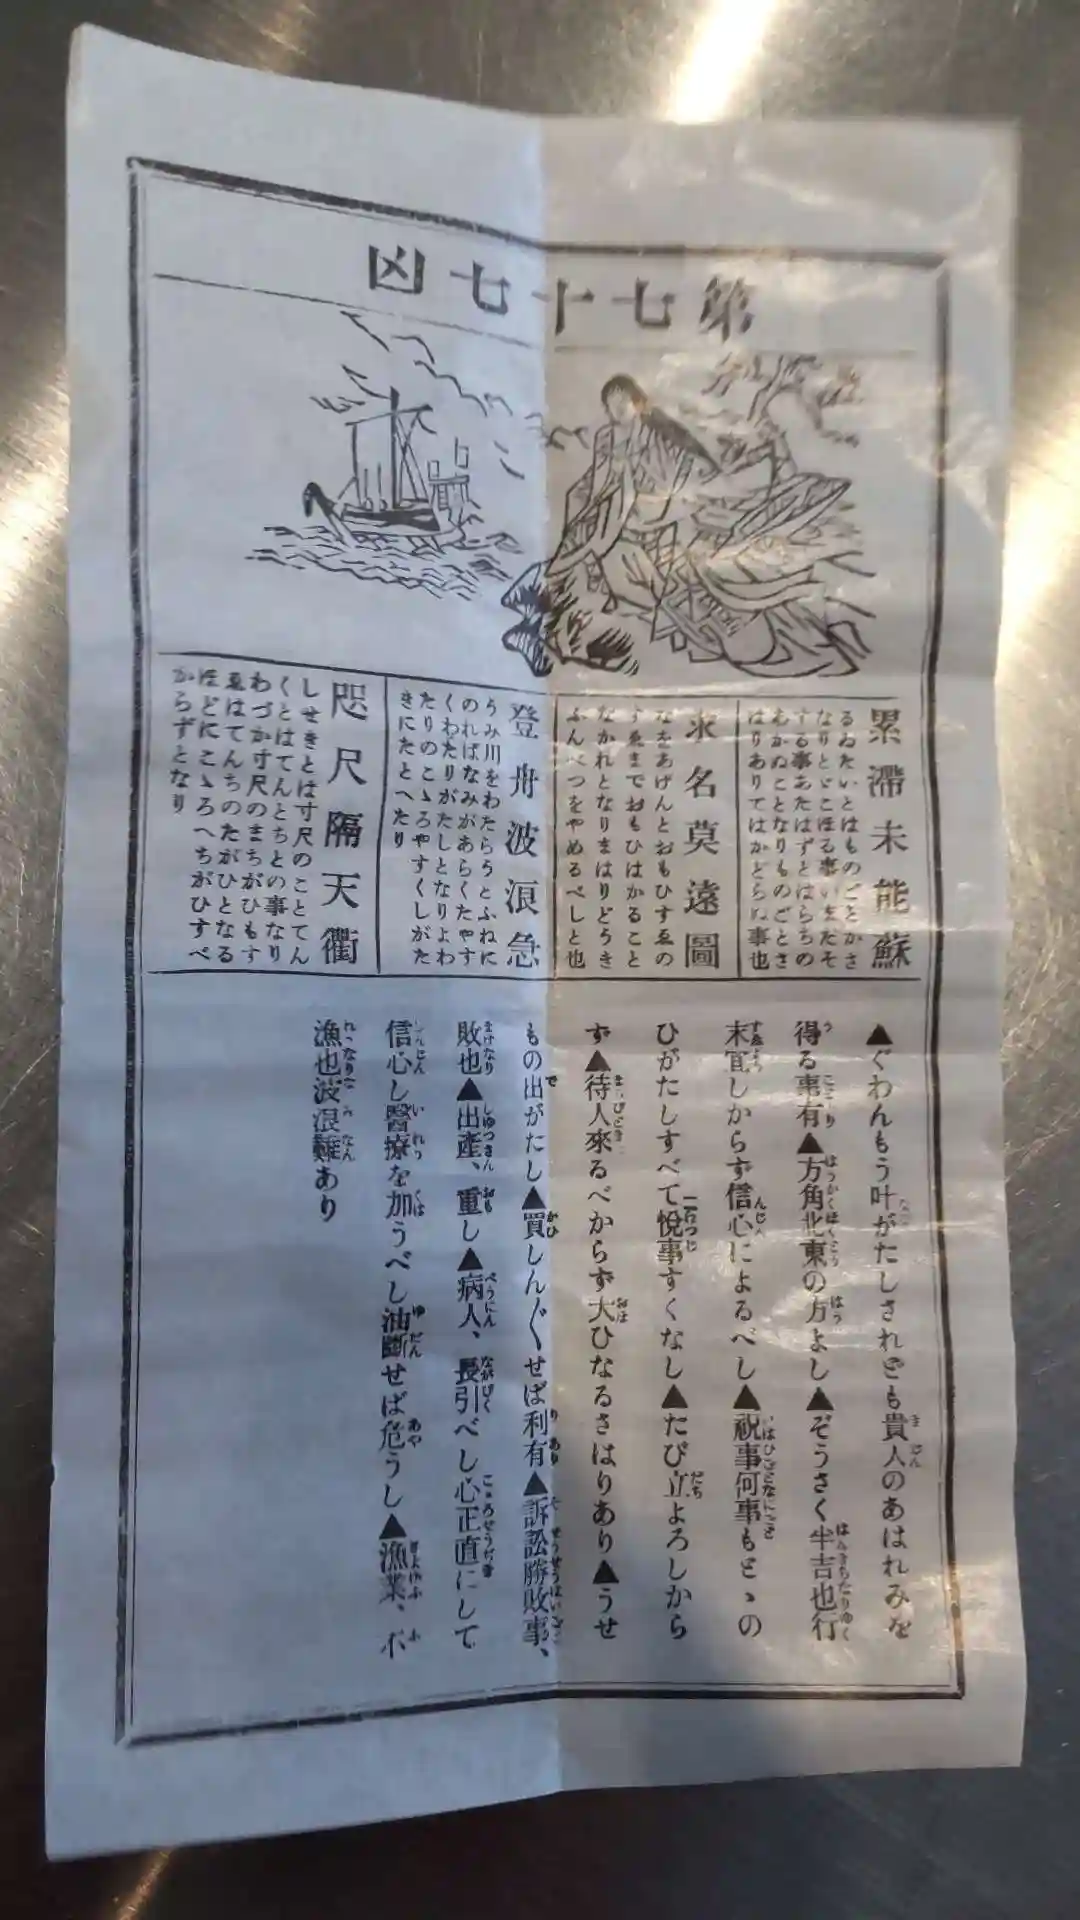 第七十七凶
累滯未能蘇
るゐたいとはものごとかさ
なりとゞこほる事いまたそ
する事あたはずとはらちの
あかぬことなりものごとさ
はりありてはかどらぬ事也
求名莫遠圖
なをあげんとおもひすゑの
すゑまでおもひはかること
なかれとなりまはりどうき
ふんべつをやめるべしと也
登舟波浪急
うみ川をわたらうとふねに
のればなみがあらくたやす
くわたりがたしとなりよわ
たりのこゝろやすくしがた
きにたとへたり
咫尺隔天衢
しせきとは寸尺のことてん
くとはてんとちとの事なり
わづか寸尺のまちがひもす
ゑはてんちのたがひとなる
ほどにこゝろへちがひすべ
からずとなり
▲ぐわんもう叶がたしされども貴人のあはれみを
得る事有▲方角北東の方よし▲ぞうさく半吉也行
末宜しからず信心によるべし▲祝事何事もとゝの
ひがたしすべて悅事すくなし▲たび立よろしから
ず▲待人來るべからず大ひなるさはりあり▲うせ
もの出がたし▲買しん〴〵せば利有▲訴訟勝敗事、
敗也▲出產、重し▲病人、長引べし心正直にして
信心し醫療を加うべし油斷せば危うし▲漁業、不
漁也波浪難あり